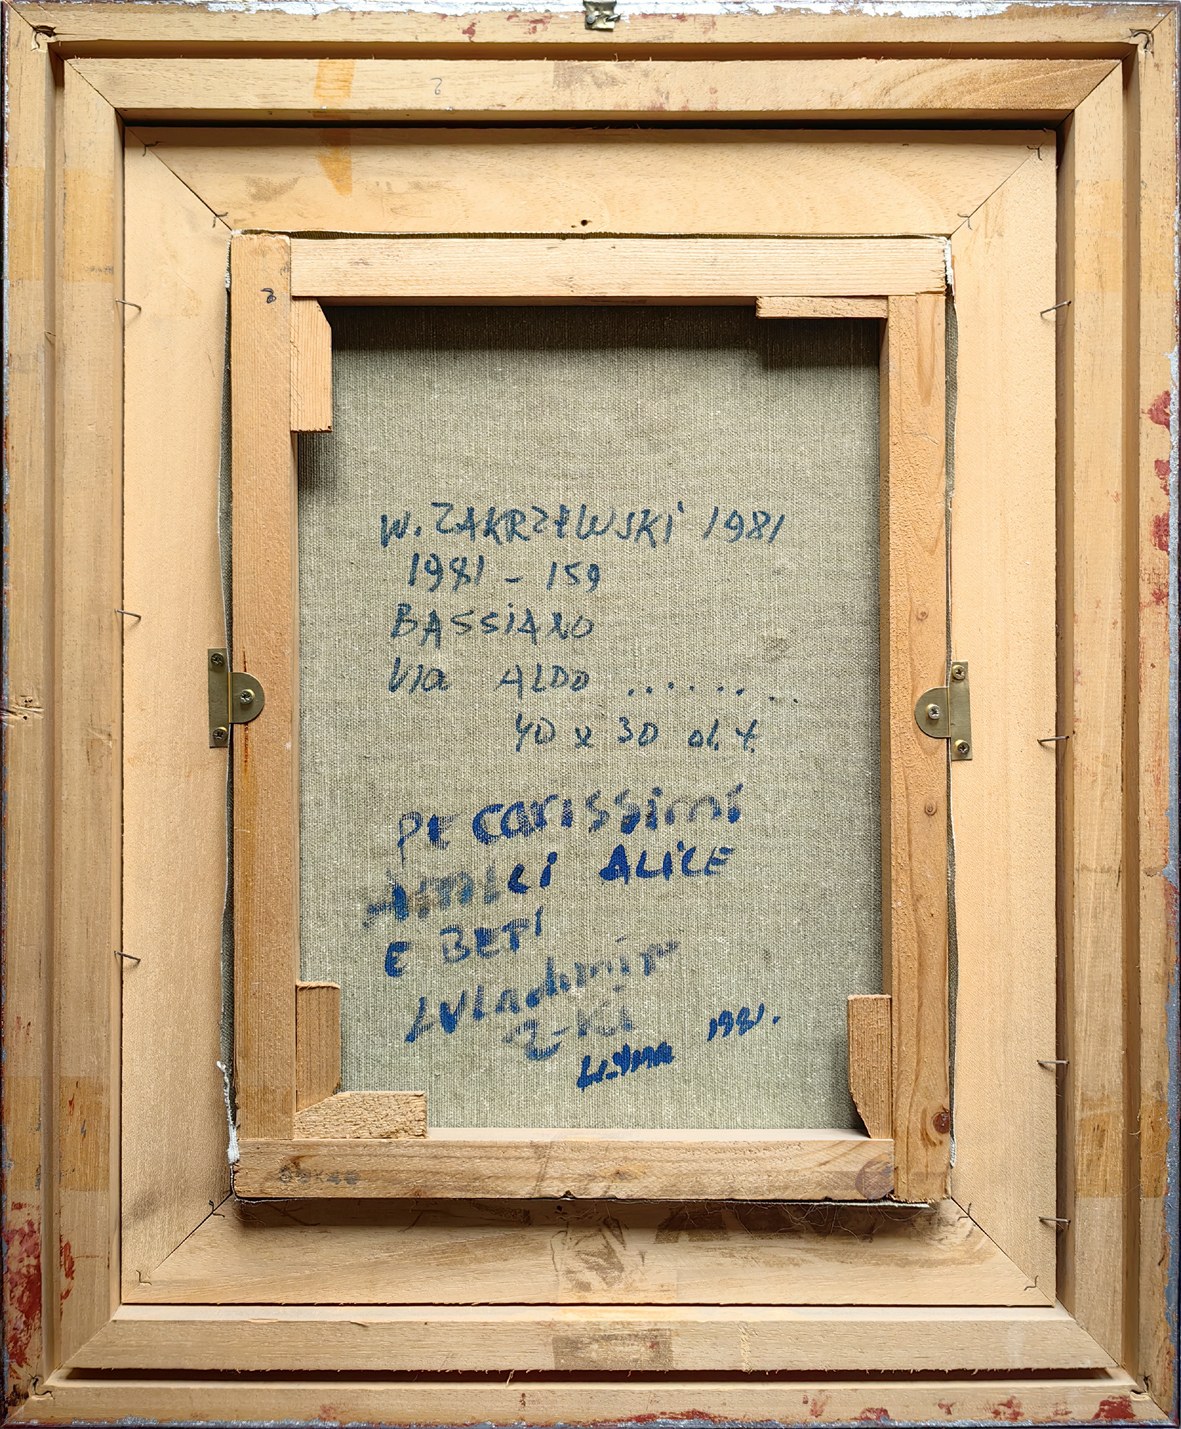 W. ZAKRZEWSKI 1981
1981 - 159
BASSIANO
Via ALDO .......
40 x 30 ol. t.
Pe carissimi
Amici ALICE
E BEPI
Wladimir
Z-Ki
1981.